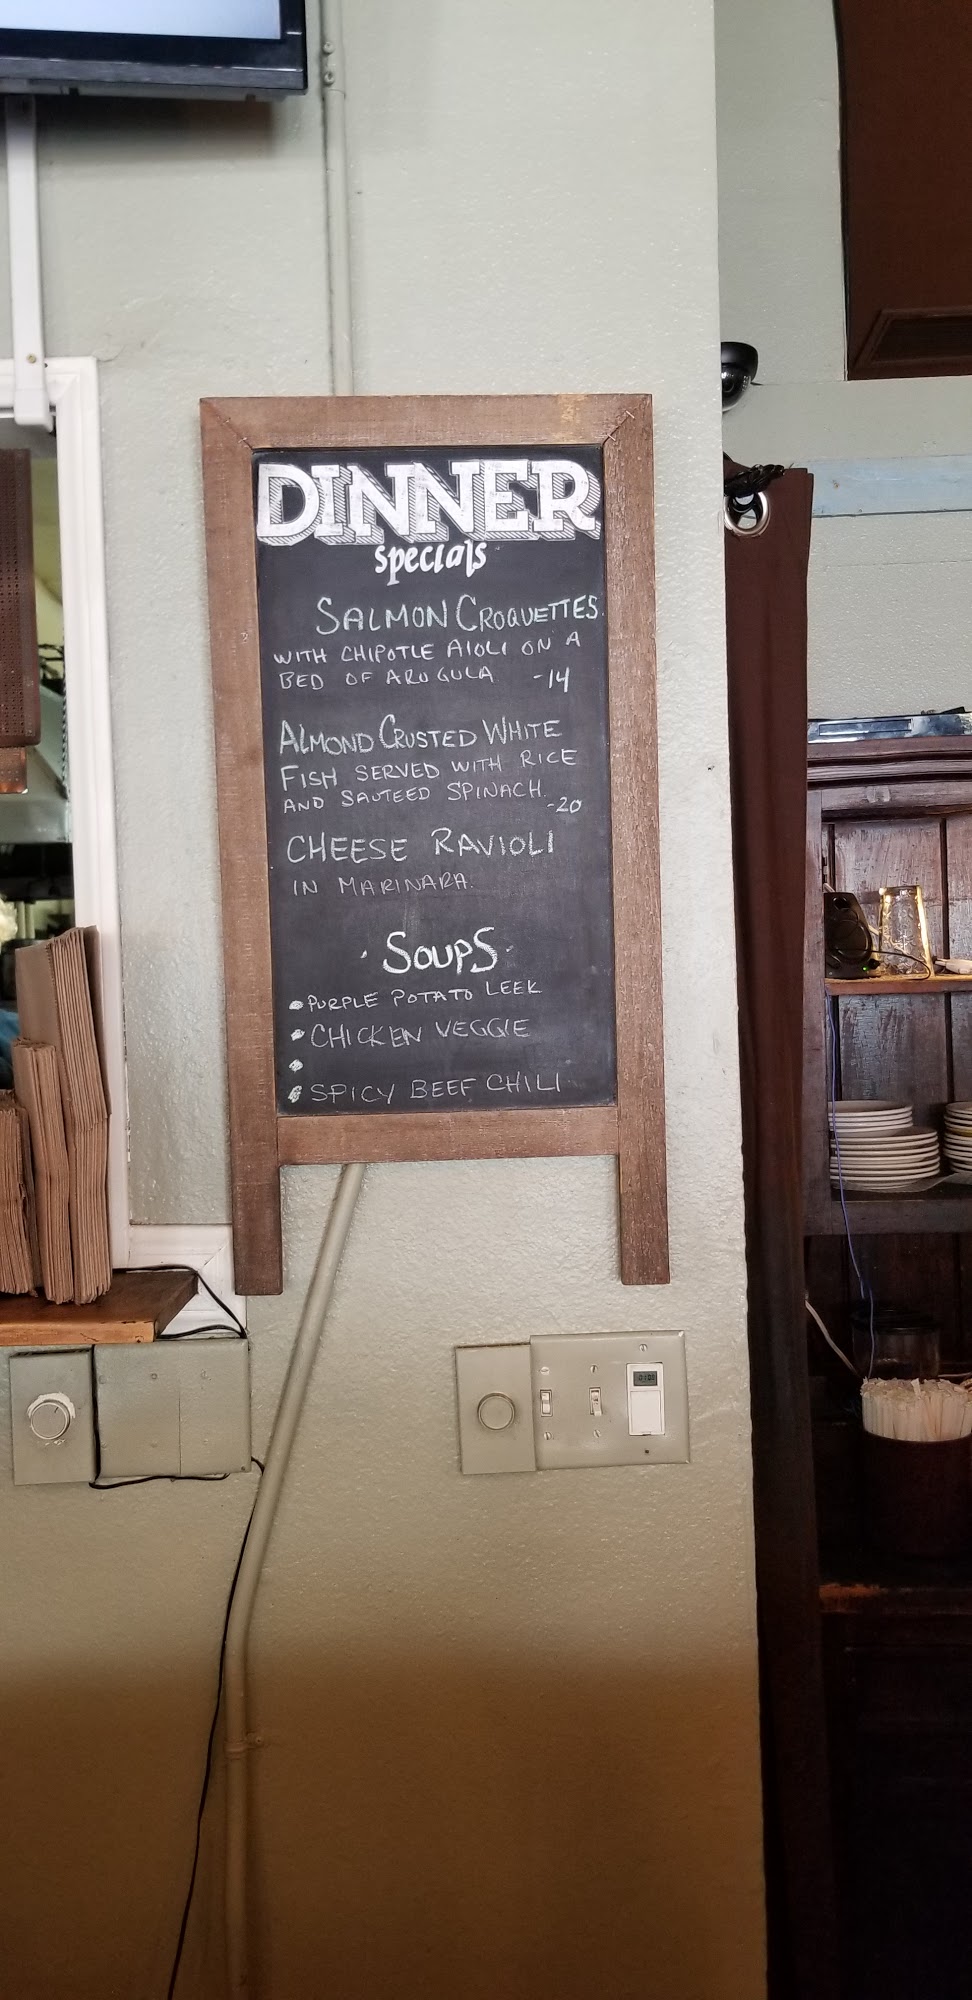 DINNER
specials
SALMON CROQUETTES
WITH CHIPOTLE AIOLI ON A
BED OF ARUGULA -14
ALMOND CRUSTED WHITE
FISH SERVED WITH RICE
AND SAUTEED SPINACH.
-20
CHEESE RAVIOLI
IN MARINARA.
· SOUPS ·
• PURPLE POTATO LEEK
• CHICKEN VEGGIE
•
• SPICY BEEF CHILI